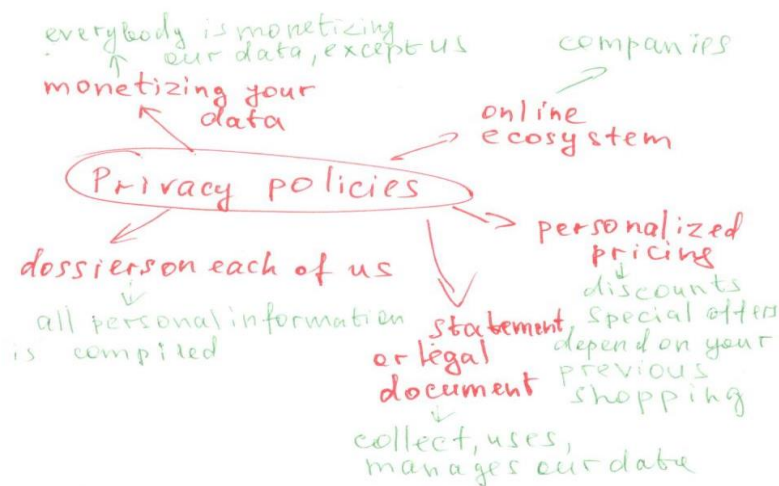 everybody is monetizing
our data, except us
monetizing your
data
companies
online
ecosystem
Privacy policies
personalized
pricing
discounts
special offers
depend on your
previous
shopping
dossiers on each of us
all personal information
is compiled
statement
or legal
document
collect, uses,
manages our data